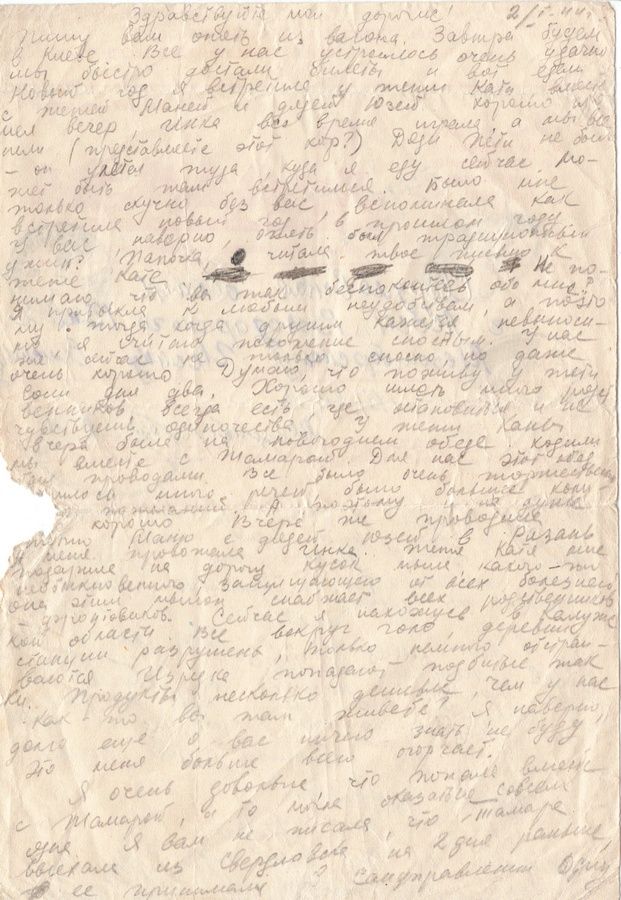 Здравствуйте мои дорогие! 2/I-44г.
Пишу вам опять из вагона. Завтра будем
в Киеве. Все у нас устроилось очень удачно
мы быстро достали билеты и вот едем
Новый год я встретила у тети Кати вместе
с тетей Маней и дядей Юзей. Хорошо про-
шел вечер, Инка все время играла а мы все
пели (представляете этот хор?) Дяди Пети не было
– он уехал туда, куда я еду сейчас. Мо-
жет быть там встретимся. Было мне
только скучно без вас вспоминала как
встретила новый год, в прошлом году
У вас наверно, опять был традиционный
ужин? Папочка, читала твое письмо к
тете Кате Не по-
нимаю, что вы так беспокоитесь обо мне?
Я привыкла к любым неудобствам, а поэто
му тогда когда другим кажется невыноси-
мо я считаю положение сносным. У нас
же сейчас не только сносно но даже
очень хорошо Думаю, что поживу у тети
Сони дня два, Хорошо иметь много родст
венников всегда есть где остановиться и не
чувствуешь одиночества. У тети Кати
вчера были на новогоднем обеде. Ходили
мы вместе с Тамарой Для нас этот обед
был проводами. Все было очень торжественно
много речей было больше
пожеланий. А поэтому и на душе
хорошо Вчера же проводили
Маню с дядей Юзей в Рязань
а меня провожала Инка. Тетя Катя мне
подарила на дорогу кусок мыла какого-то
необыкновенного, защищающего от всех болезней
она этим мылом снабжает всех родственников
Сейчас я нахожусь в Калужс
кой области Все вокруг голо, деревни
станции разрушены, только немного отстраи-
ваются Изредка попадают подбитые тан
ки. Продукты несколько дешевле, чем у нас
Как-то вы там живете? Я наверно,
долго еще о вас ничего знать не буду
Это меня больше всего огорчает.
Я очень довольна что попала вместе
с Тамарой, а то могла оказаться совсем
одна Я вам не писала, что Тамара
выехала из Свердловска на 2 дня раньше
ее принимали в Сануправлении